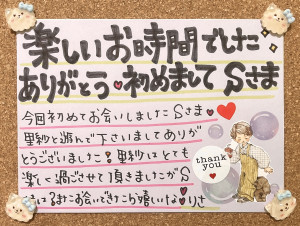 楽しいお時間でした
ありがとう♥初めましてSさま
今回初めてお会いしましたSさま♥
里紗と遊んで下さいましてありが
とうございました!里紗はとても
楽しく過ごさせて頂きましたがS
またお会いできたら嬉しいな♥りさ
thank
you